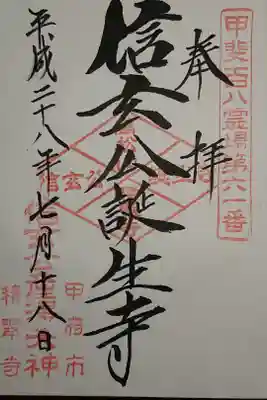 甲斐百八霊場第六一番
奉拝
信玄公誕生寺
平成二十八年七月十八日
甲府市
積翠寺